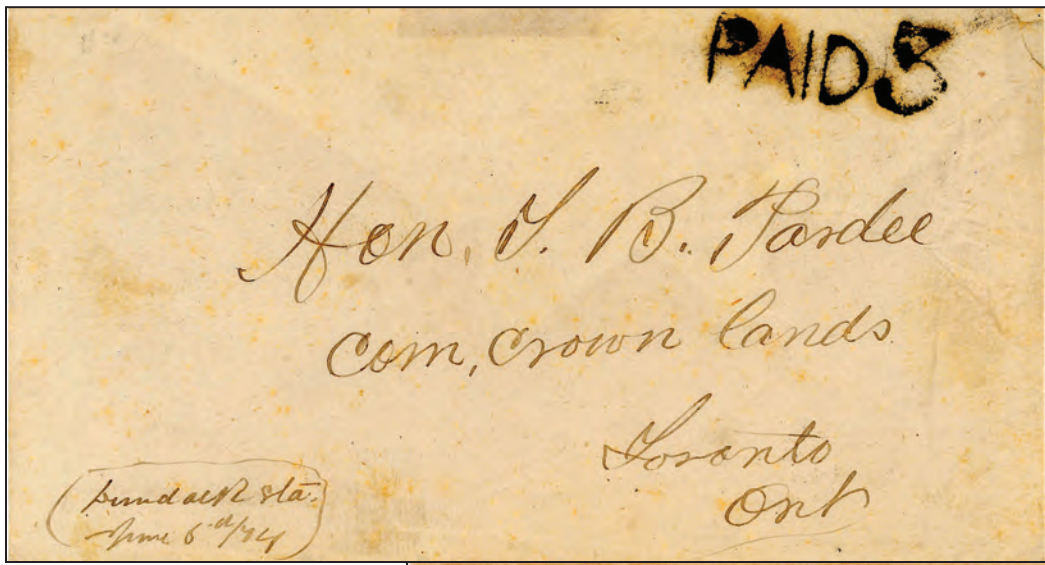 PAID 3
Hon. T. B. Pardee
Com, Crown lands
Toronto
Ont
Dundalk Sta.
June 6